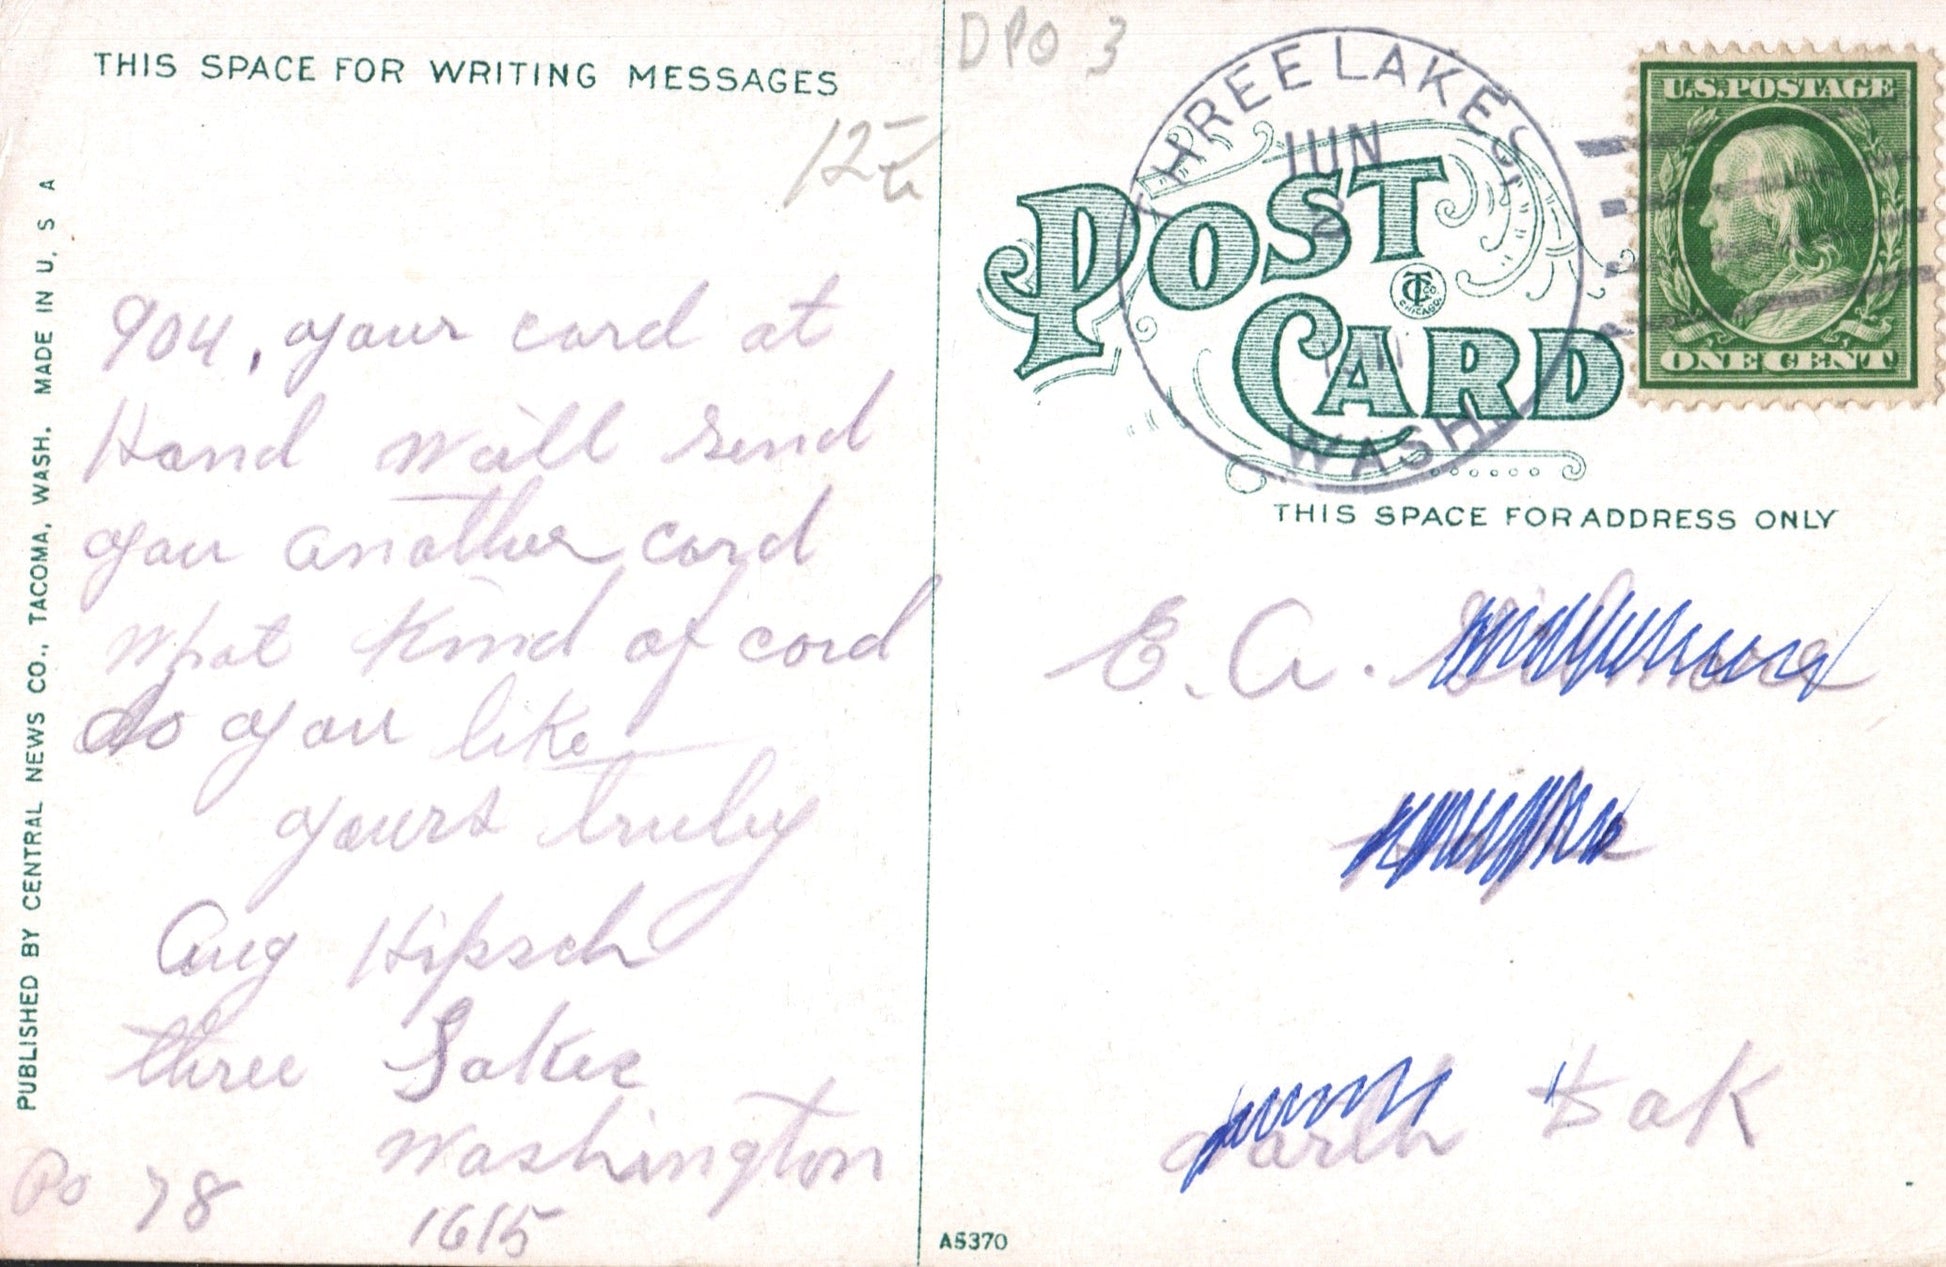 THIS SPACE FOR WRITING MESSAGES
904, your card at
Hand will send
you another card
what kind of card
do you like
yours truly
Aug Hipsch
three Lakes
Washington
1615
Po 78
PUBLISHED BY CENTRAL NEWS CO., TACOMA, WASH. MADE IN U. S A
DPO 3
THREE LAKES
JUN
2
WASH.
U.S. POSTAGE
ONE CENT
POST
CARD
THIS SPACE FOR ADDRESS ONLY
E. A.
Dak
A5370